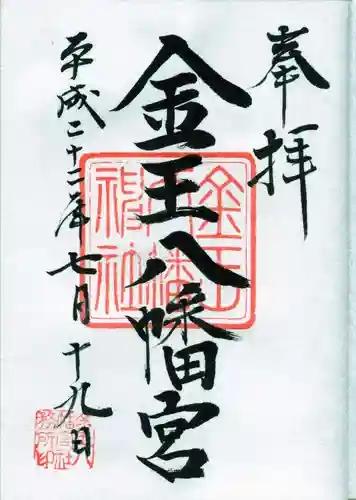 奉拝
金王八幡宮
平成二十二年七月十九日
金王八幡神社